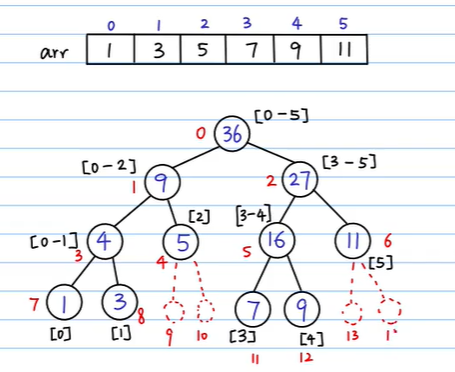 0 1 2 3 4 5
arr 1 3 5 7 9 11
0 36 [0-5]
[0-2] 1 9 2 27 [3-5]
[0-1] 3 4 4 5 [2] [3-4] 5 16 11 6 [5]
7 1 3 8 9 10 7 9 13
[0] [1] [3] [4]
11 12